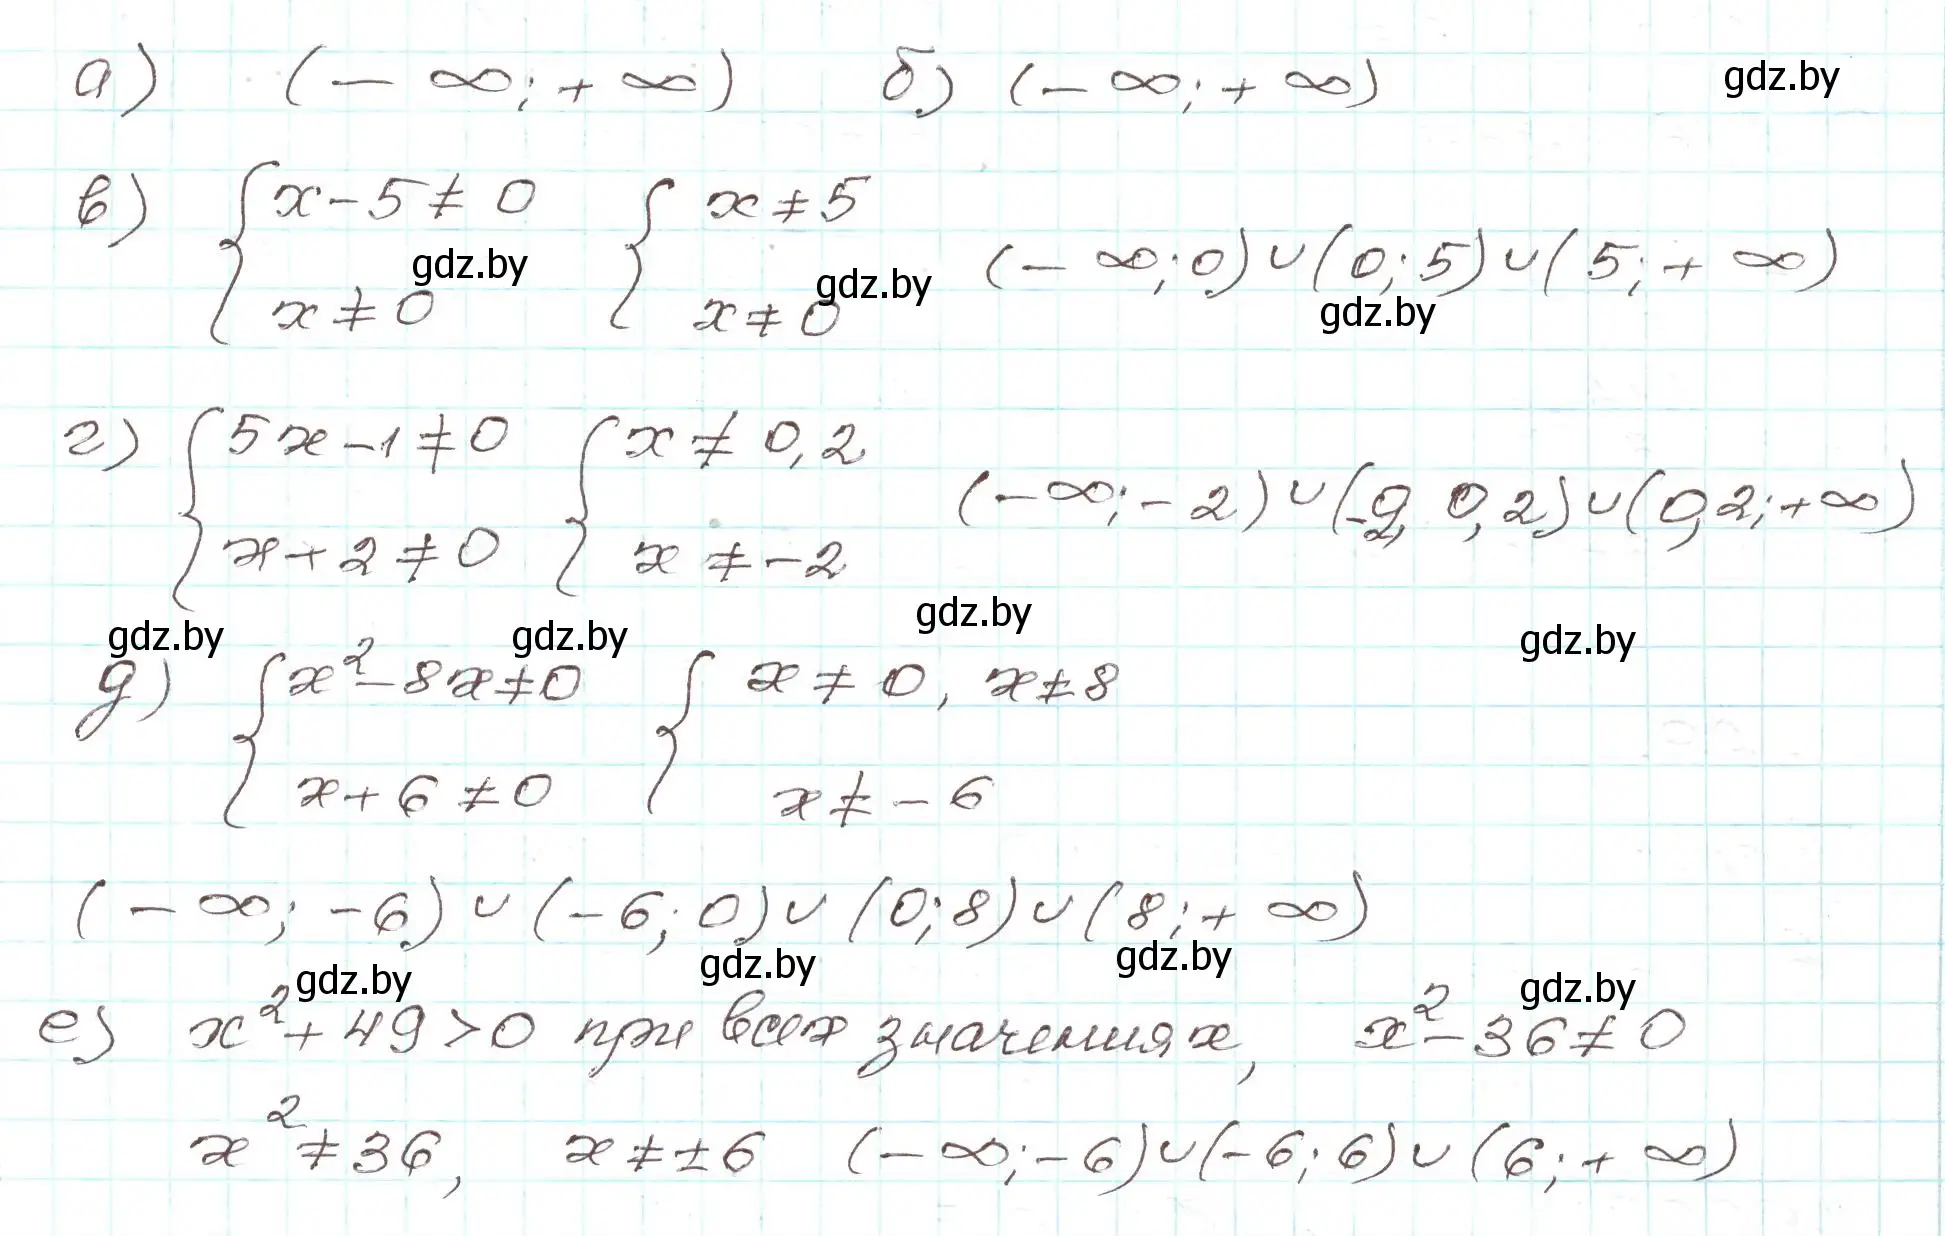 а) (− ∞; + ∞) б) (− ∞; + ∞) gdz.by
в) { x − 5 ≠ 0 { x ≠ 5
gdz.by gdz.by (− ∞; 0) ∪ (0; 5) ∪ (5; + ∞)
x ≠ 0 x ≠ 0 gdz.by
г) { 5x − 1 ≠ 0 { x ≠ 0,2
(−∞; −2) ∪ (−2; 0,2) ∪ (0,2; +∞)
x + 2 ≠ 0 x ≠ −2
gdz.by gdz.by gdz.by gdz.by
д) { x² − 8x ≠ 0 { x ≠ 0, x ≠ 8
x + 6 ≠ 0 x ≠ − 6
(− ∞; −6) ∪ (−6; 0) ∪ (0; 8) ∪ (8; + ∞)
gdz.by gdz.by gdz.by gdz.by
е) x² + 49 > 0 при всех значениях x, x² − 36 ≠ 0
x² ≠ 36, x ≠ ± 6 (− ∞; −6) ∪ (−6; 6) ∪ (6; + ∞)